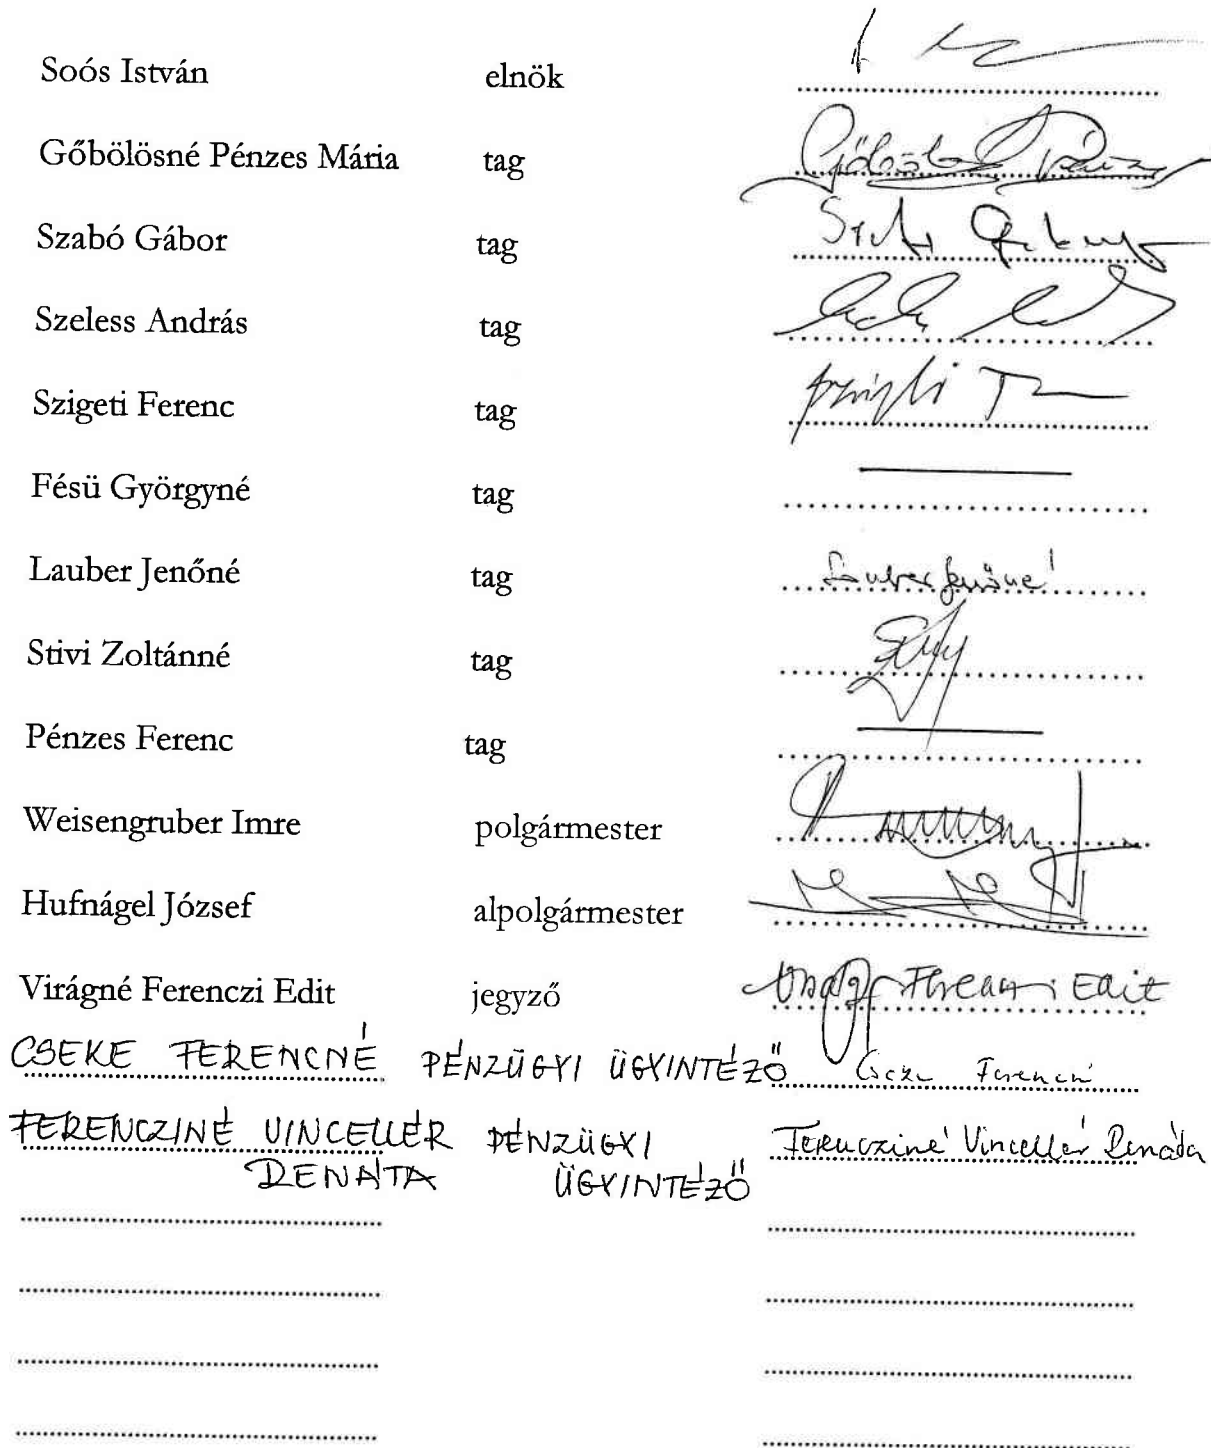 Soós István elnök
Gőbölösné Pénzes Mária tag
Szabó Gábor tag
Szeless András tag
Szigeti Ferenc tag
Fésü Györgyné tag
Lauber Jenőné tag Lauber Jenőné
Stivi Zoltánné tag
Pénzes Ferenc tag
Weisengruber Imre polgármester
Hufnágel József alpolgármester
Virágné Ferenczi Edit jegyző Ferenczi Edit
CSEKE FERENCNÉ PÉNZÜGYI ÜGYINTÉZŐ Cseke Ferencné
FERENCZINÉ VINCELLÉR PÉNZÜGYI Ferencziné Vincellér Renáta
RENÁTA ÜGYINTÉZŐ